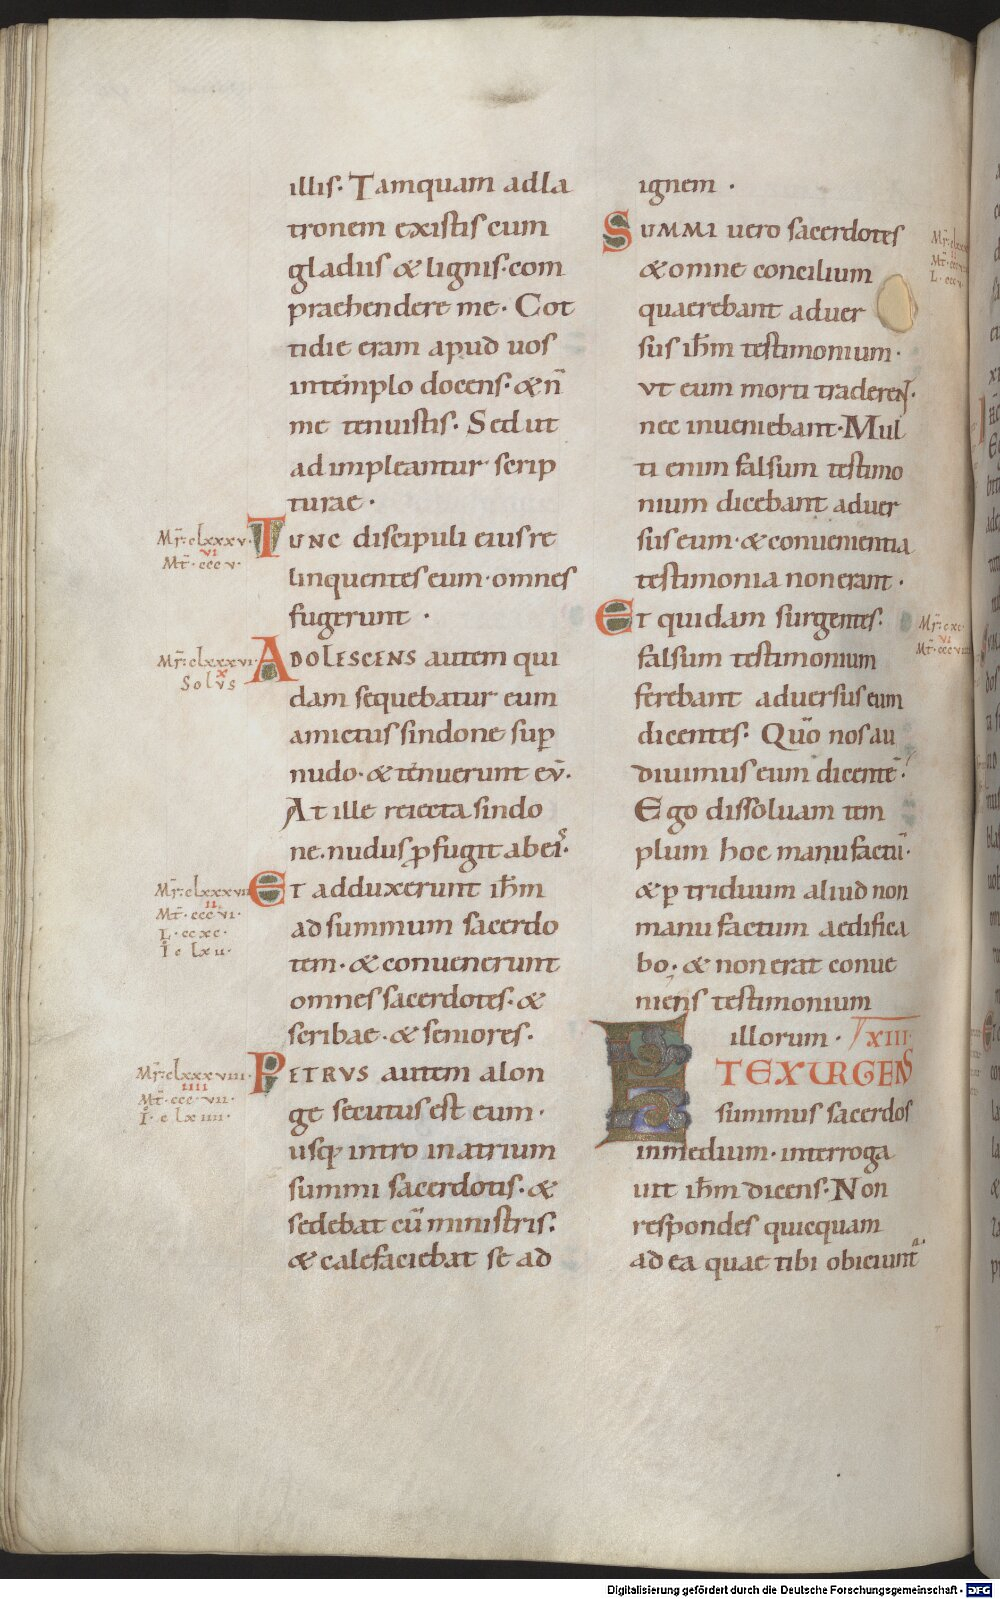 illis. Tamquam ad la
tronem existis cum
gladiis & lignis. com
praehendere me. Cot
tidie eram apud uos
in templo docens. & n̄
me tenuistis. Sed ut
adimpleantur scrip
turae.
Mr̄. clxxxv.
vi
Mt̄. cccv.
TUNC discipuli eius re
linquentes eum. omnes
fugerunt.
Mr̄. clxxxvi.
x
Solus
ADOLESCENS autem qui
dam sequebatur eum
amictus sindone sup̄
nudo. & tenuerunt eū.
At ille reiecta sindo
ne. nudus ꝓfugit ab eis.
Mr̄. clxxxvii
ii.
Mt̄. cccvi.
L. ccxc.
I. clxu.
Et adduxerunt ih̄m
ad summum sacerdo
tem. & conuenerunt
omnes sacerdotes. &
scribae. & seniores.
Mr̄. clxxxviii.
iiii
Mt̄. cccvii.
I. clxiiii.
PETRVS autem alon
ge secutus est eum.
usq; intro in atrium
summi sacerdotis. &
sedebat cū ministris.
& calefaciebat se ad
ignem.
SUMMI uero sacerdotes
& omne concilium
quaerebant aduer
sus ih̄m testimonium.
vt eum morti traderent.
nec inueniebant. Mul
ti enim falsum testimo
nium dicebant aduer
sus eum. & conuenientia
testimonia non erant.
Mr̄. cxc.
vi
Et quidam surgentes.
falsum testimonium
ferebant aduersus eum
dicentes. Quō nos au
diuimus eum dicentē.
Ego dissoluam tem
plum hoc manu factū.
& ꝑ triduum aliud non
manu factum aedifica
bo. & non erat conue
niens testimonium
illorum. XIII
ET EXURGENS
summus sacerdos
in medium. interroga
uit ih̄m dicens. Non
respondes quicquam
ad ea quae tibi obiciunt̄
Digitalisierung gefördert durch die Deutsche Forschungsgemeinschaft - DFG